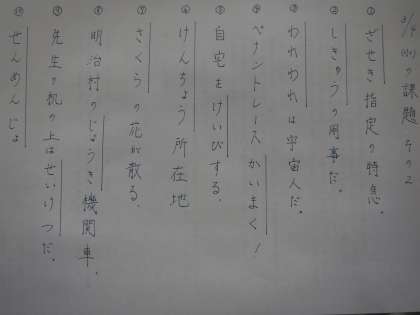 3/4 (水)の課題 その2
① ざせき指定の特急。
② しきゅうの用事だ。
③ われわれは宇宙人だ。
④ ペナントレースかいまく!
⑤ 自宅をけいびする。
⑥ けんちょう所在地
⑦ さくらの花が散る。
⑧ 明治村のじょうき機関車。
⑨ 先生の机の上はせいけつだ。
⑩ せんめんじょ